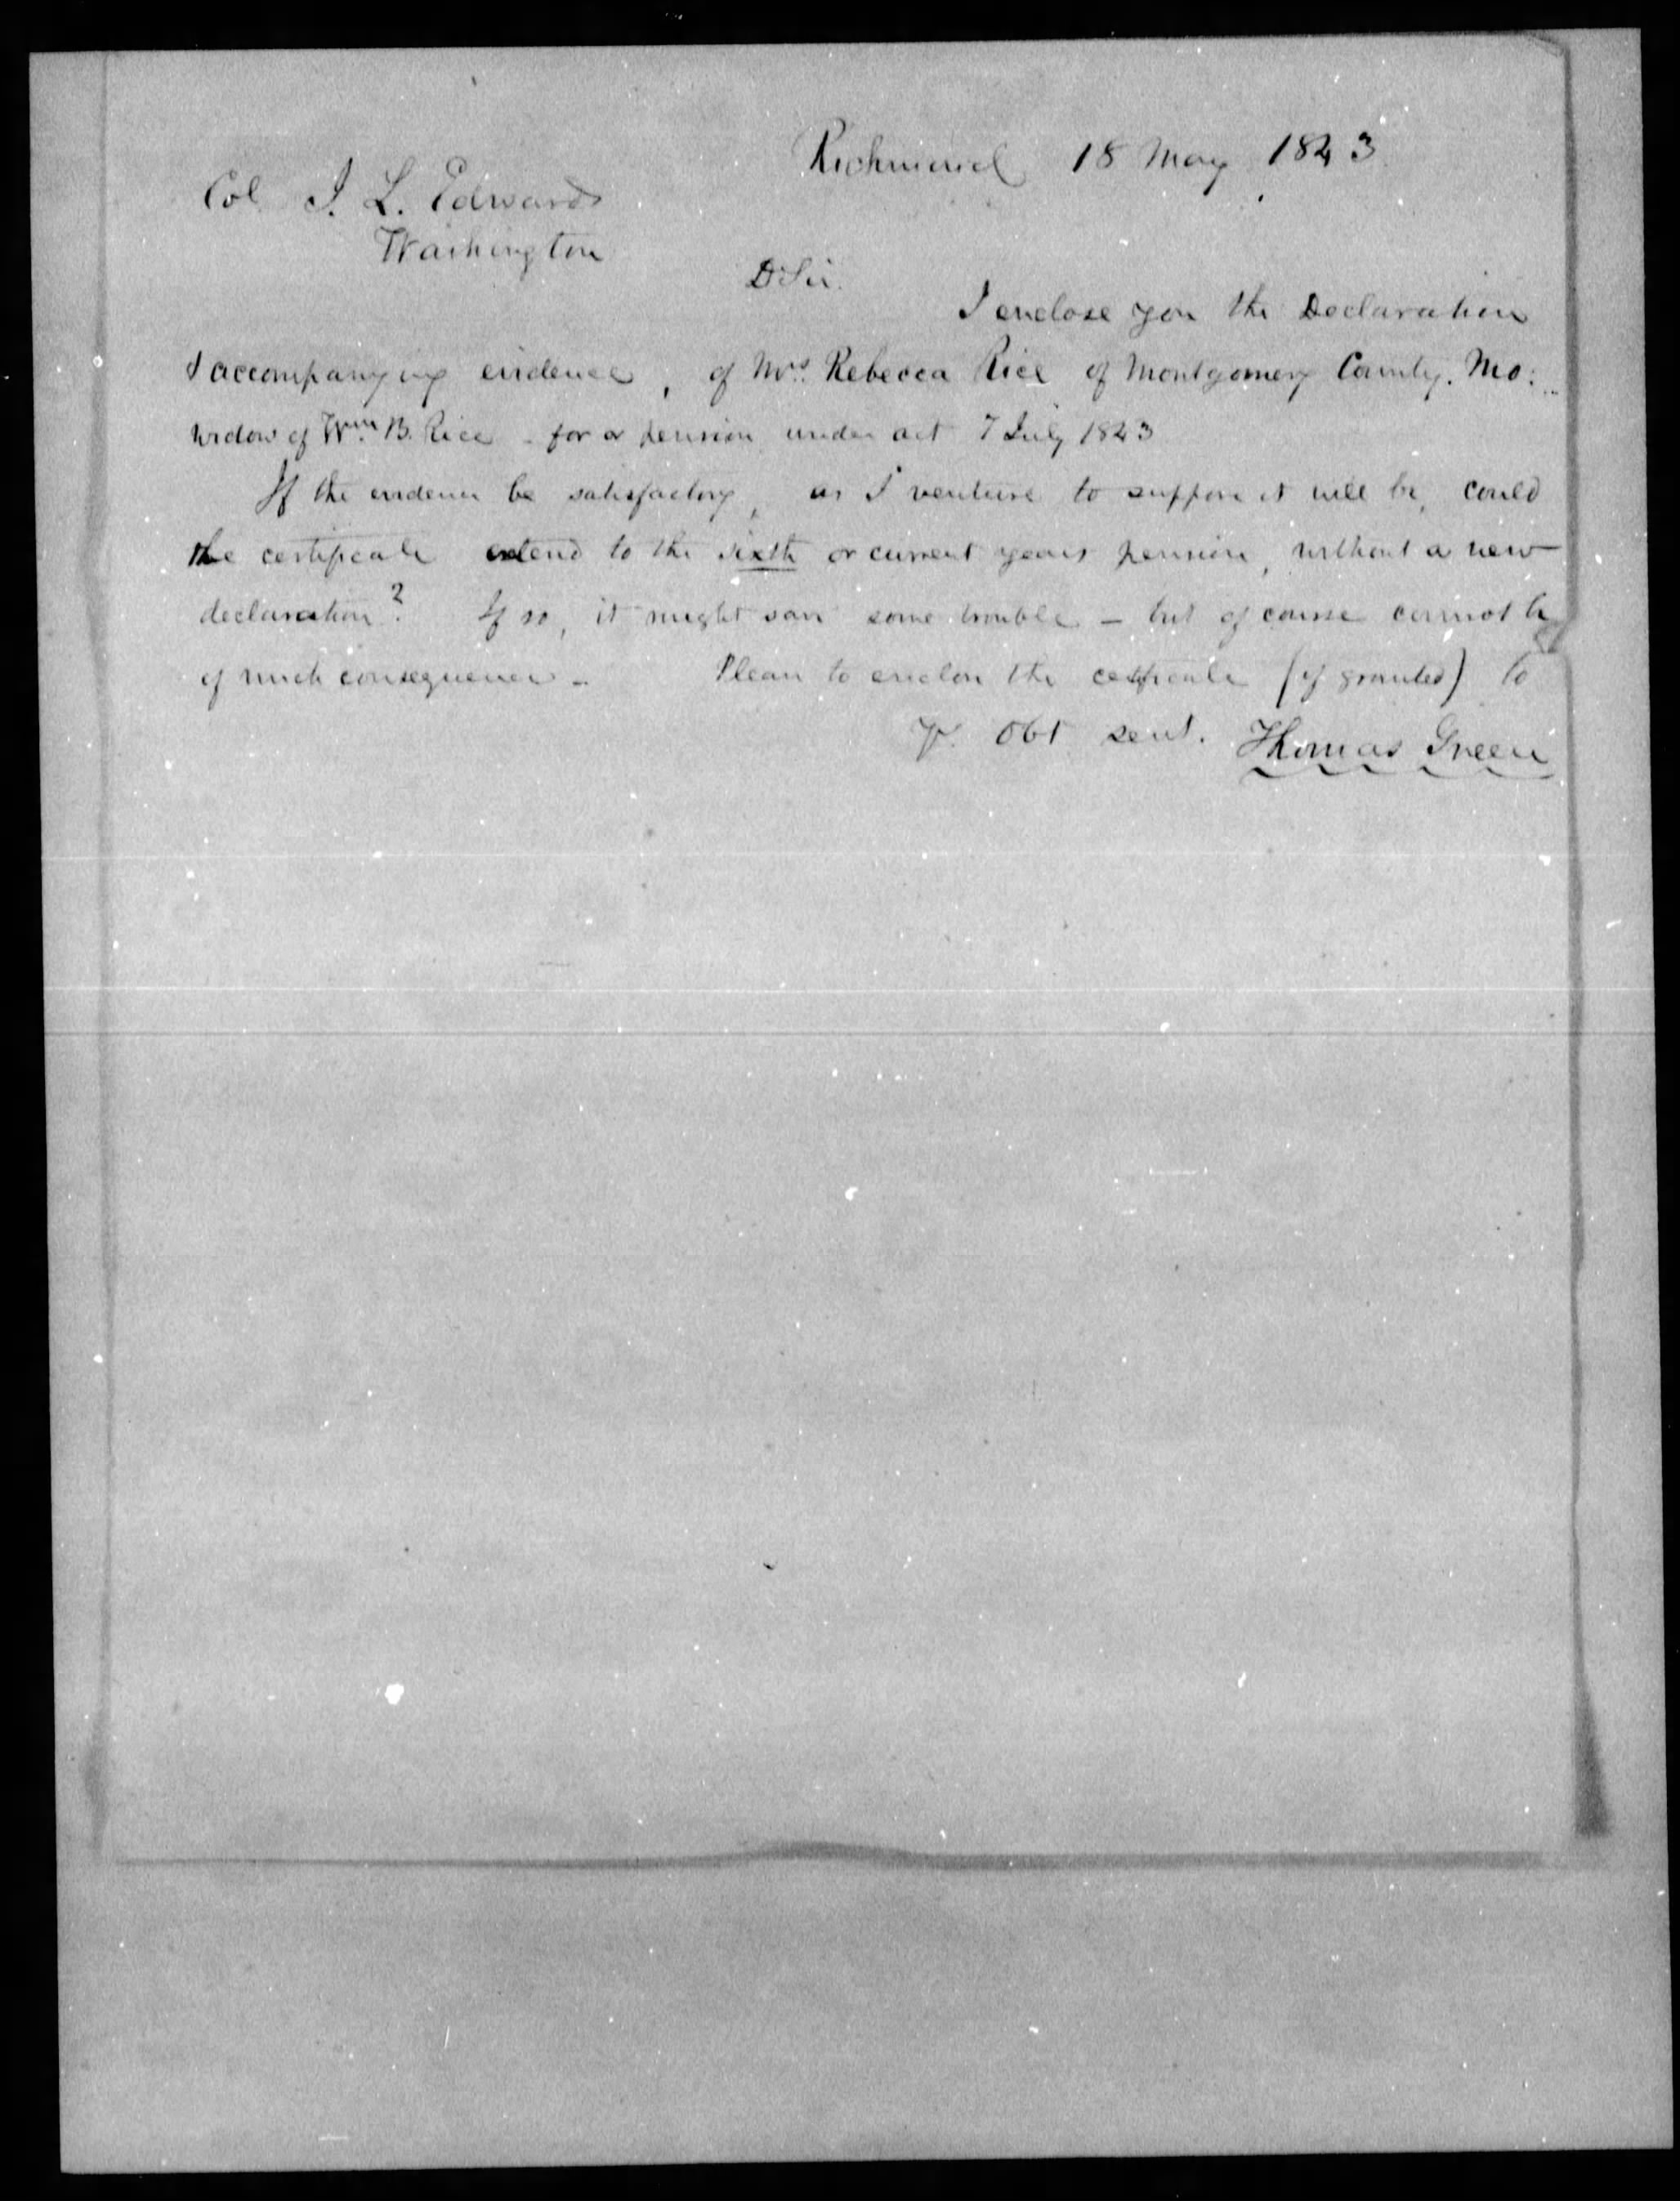 Richmond 18 May 1843
Col J. L. Edwards
Washington
D Sir.
I enclose you the Declaration
& accompanying evidence, of Mrs. Rebecca Rice of Montgomery County. Mo:
widow of Wm. B. Rice - for a pension under act 7 July 1843
If the evidence be satisfactory, as I venture to suppose it will be, could
the certificate extend to the sixth or current years pension, without a new
declaration? If so, it might save some trouble - but of course cannot be
of much consequence - Please to enclose the certificate (if granted) to
Yr. Obt servt. Thomas Green